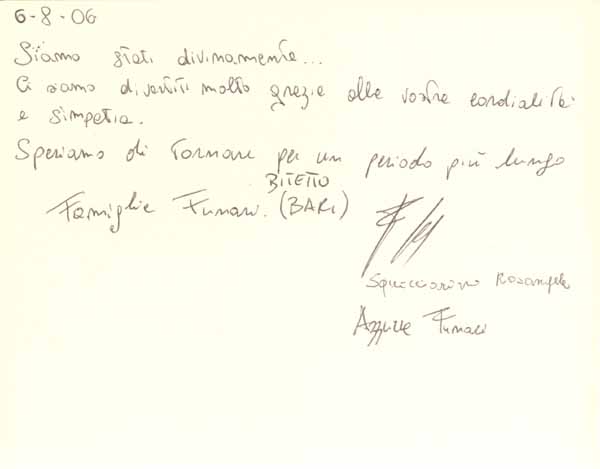 6-8-06
Siamo stati divinamente...
Ci siamo divertiti molto grazie alla vostra cordialità
e simpatia.
Speriamo di tornare per un periodo più lungo
BITETTO
Famiglia Funari. (BARI)
Rosangela
Azzurra Funari